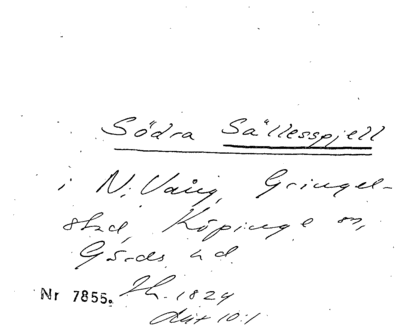 Södra Sällesspjell
i N. Vång, Gringel-
stad, Köpinge sn,
Gärds hd
Nr 7855. Zh. 1824
Akt 10:1